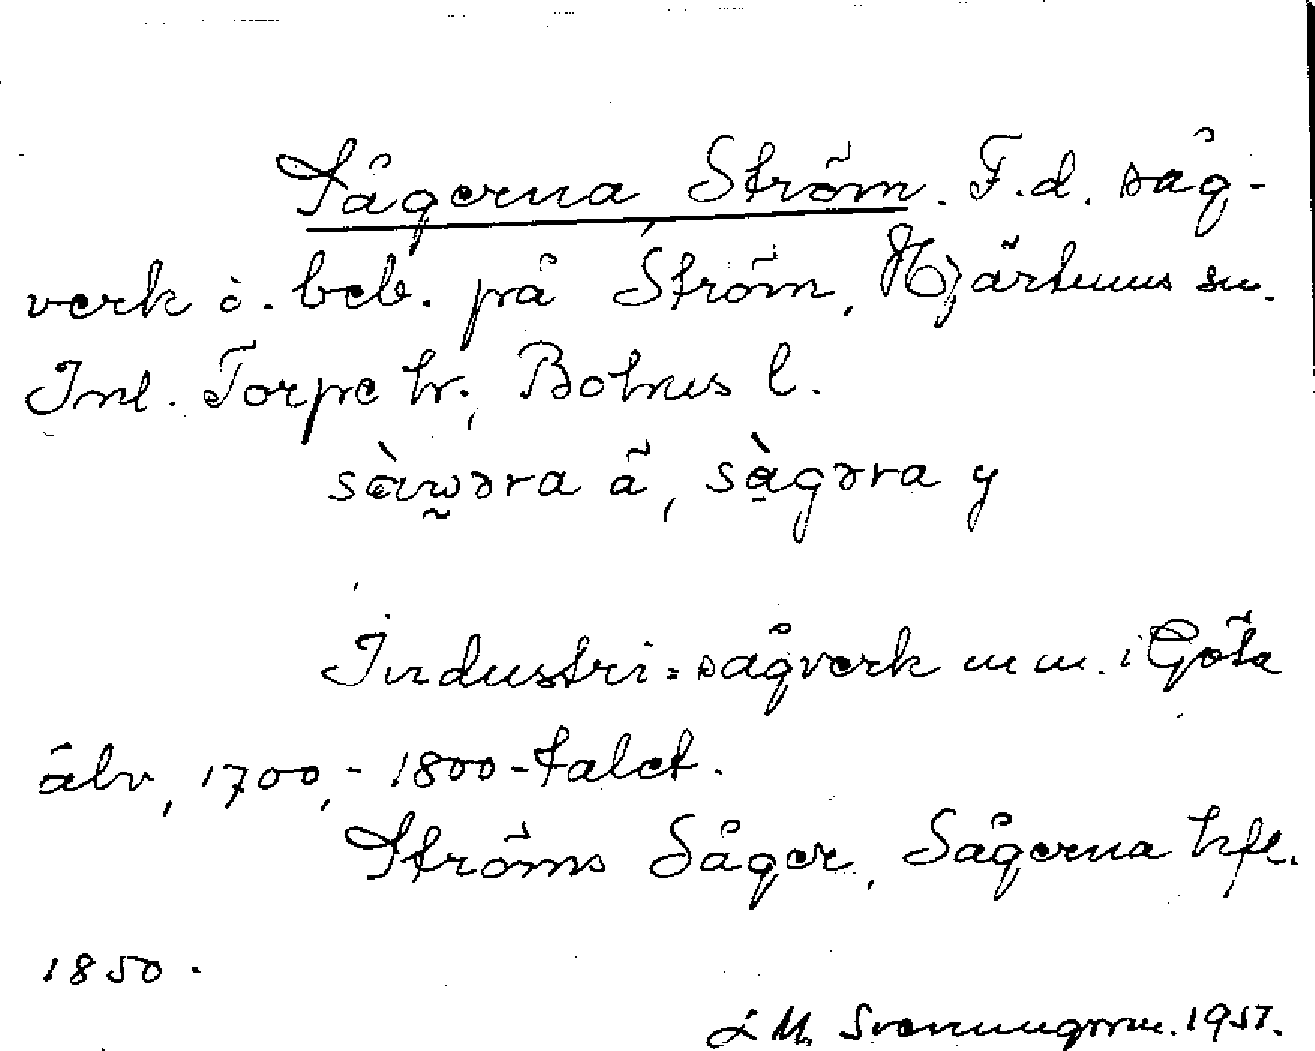 Sågerna, Ström. F.d. såg-
verk o. beb. på Ström, Hjärtums sn.
Inl. Torpe hr., Bohus l.
sàwəra ä, sàgəra y
Industri=sågverk m m. i Göta
älv, 1700,- 1800-talet.
Ströms Såger, Sågerna hfl.
1850.
L M. Svenungsson. 1957.